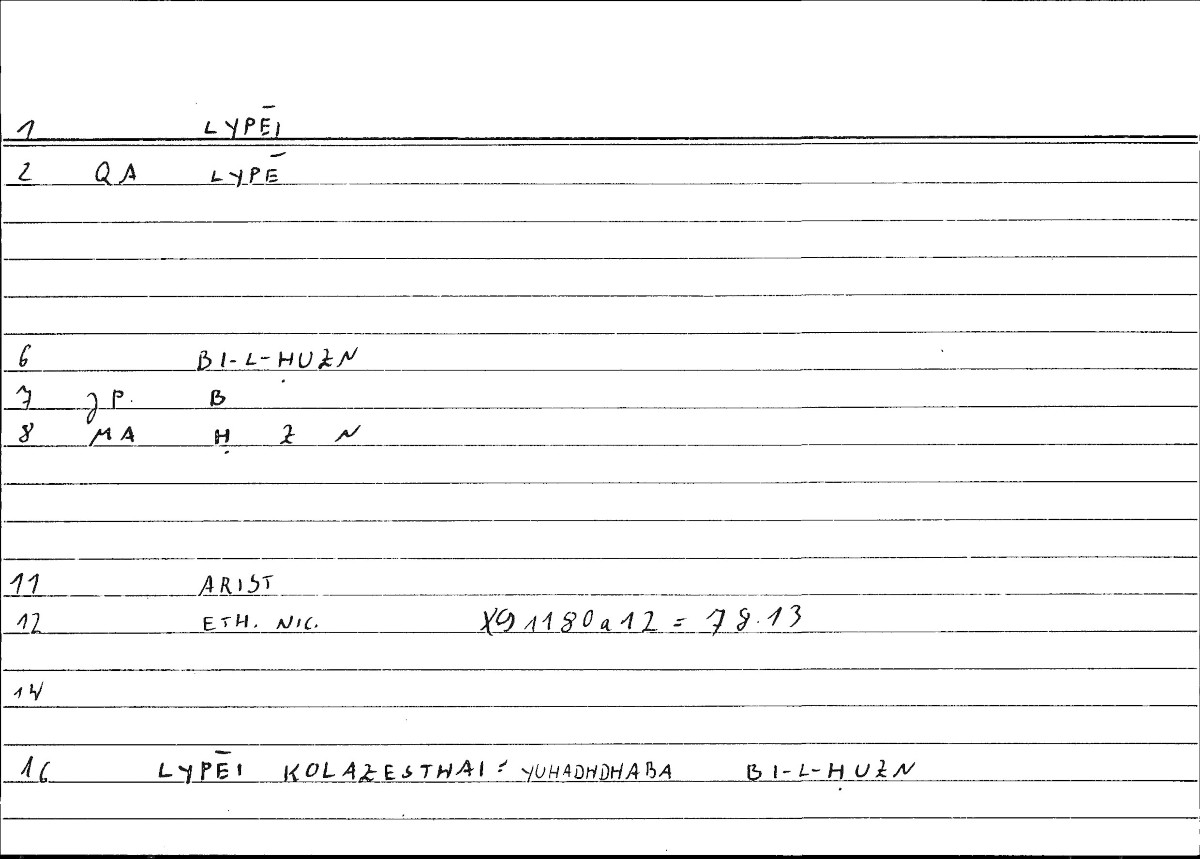 1 LYPĒI
2 QA LYPĒ
6 BI-L-ḤUZN
7 JP. B
8 MA Ḥ Z N
11 ARIST
12 ETH. NIC. X9 1180a12 = 78.13
14
16 LYPĒI KOLAZESTHAI : YUHADHDHABA BI-L-ḤUZN